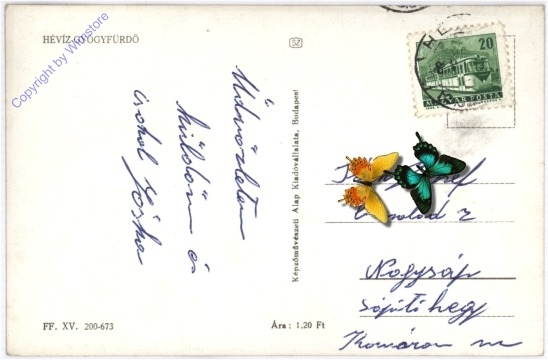 HÉVÍZ-GYÓGYFÜRDŐ
Copyright by Winstore
SZ
20
MAGYAR POSTA
Üdvözletem
küldöm és
csókol Jóska
Képzőművészeti Alap Kiadóvállalata, Budapest
család r
Nagysáp
Sápi hegy
Komárom m
FF. XV. 200-673
Ára : 1,20 Ft